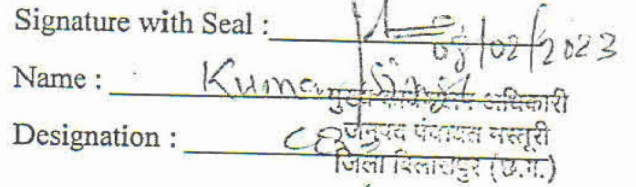 Signature with Seal :
08/02/2023
Name : Kumar Singh
मुख्य कार्यपालन अधिकारी
Designation : CEO
जनपद पंचायत मस्तूरी
जिला बिलासपुर (छ.ग.)